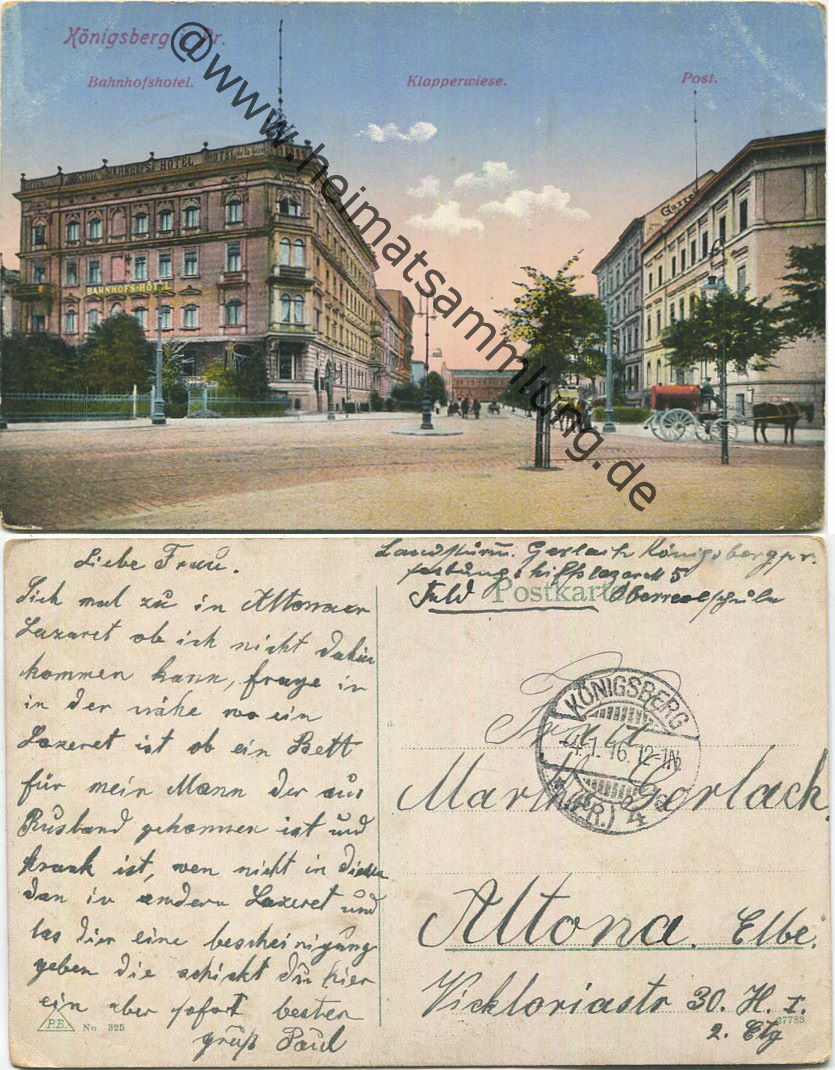 Königsberg i. Pr.
Bahnhofshotel.
Klapperwiese.
Post.
BAHNHOFS-HOTEL
BAHNHOFS-HOTEL
@www.heimatsammlung.de
Liebe Frau.
Sich mal zu in Altonaer
Lazaret ob ich nicht dahin
kommen kann, frage in
in der nähe wo ein
Lazeret ist ob ein Bett
für mein Mann der aus
Rusland gekommen ist und
krank ist, wen nicht in diesen
dan in andern Lazeret und
las dier eine bescheinigung
geben die schickt du hier
ein aber sofort besten
grüß Paul
P.E. No. 325
Landsturm. Gerlach Königsberg pr.
festungshilfslazarett 5
Feld Oberrealschule
Postkarte
KÖNIGSBERG
4.1.16. 12-1N
(PR.) 4
Frau
Martha Gerlach.
Altona. Elbe.
Vicktoriastr 30. H. I.
2. Etg
27783